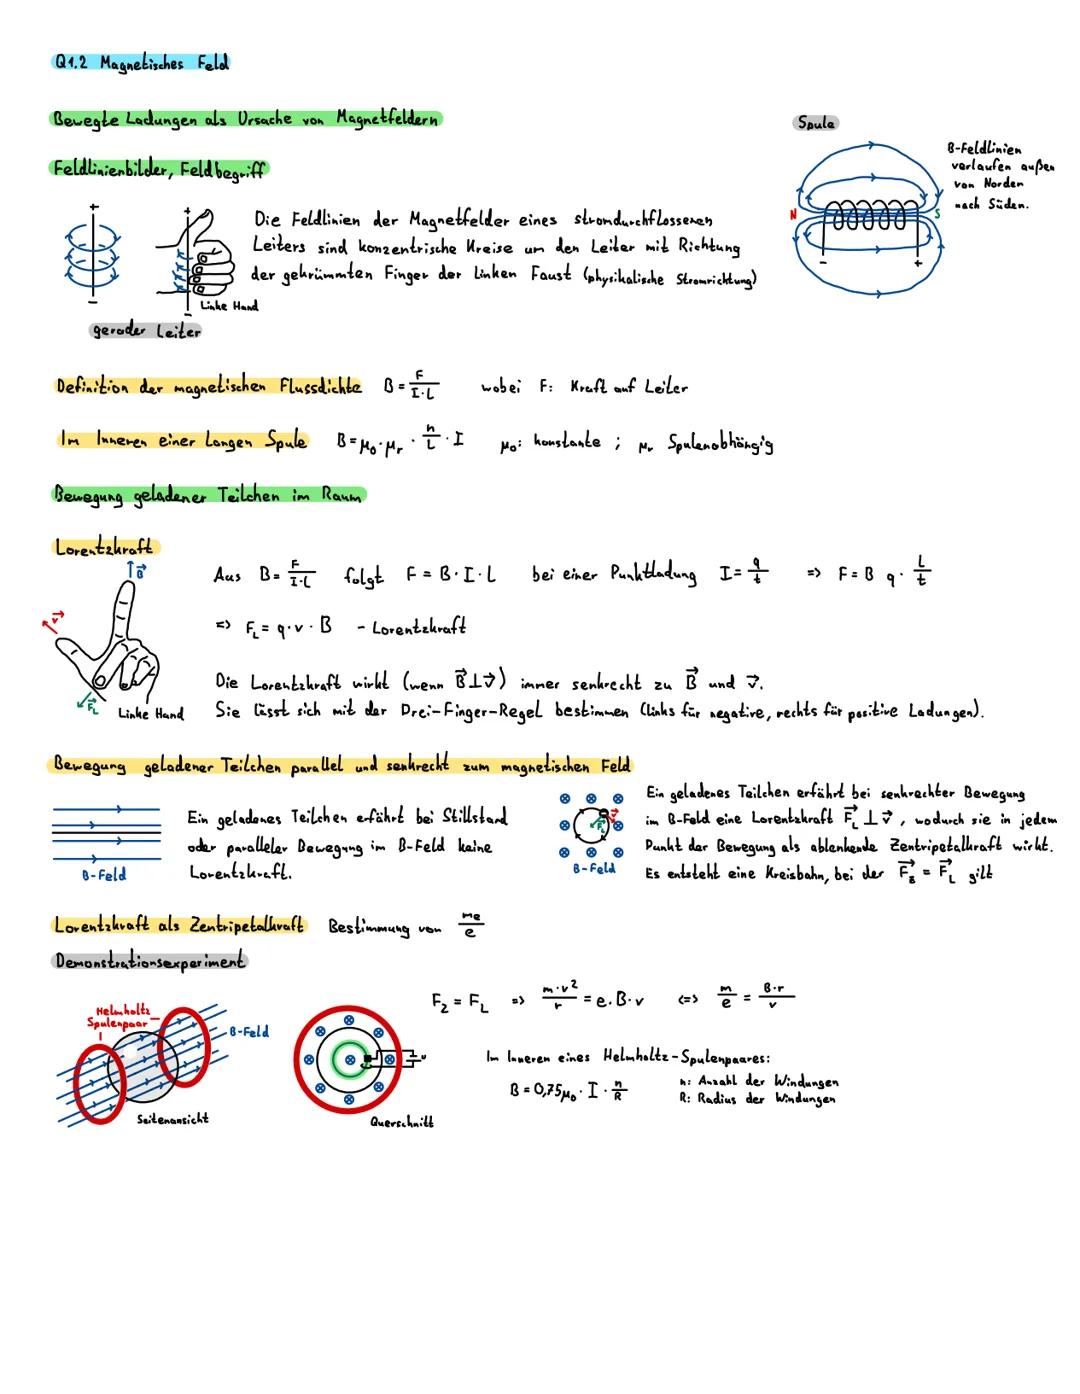 Q1.2 Magnetisches Feld
Bewegte Ladungen als Ursache von Magnetfeldern
Feldlinienbilder, Feldbegriff
+
-
+
-
Linke Hand
gerader Leiter
Die Feldlinien der Magnetfelder eines stromdurchflossenen
Leiters sind konzentrische Kreise um den Leiter mit Richtung
der gekrümmten Finger der Linken Faust (physikalische Stromrichtung)
Spule
N
S
-
+
B-Feldlinien
verlaufen außen
von Norden
nach Süden.
Definition der magnetischen Flussdichte B = F/(I·L) wobei F: Kraft auf Leiter
Im Inneren einer langen Spule B = μ₀·μᵣ · n/L · I μ₀: konstante ; μᵣ Spulenabhängig
Bewegung geladener Teilchen im Raum
Lorentzkraft
B⃗
v⃗
F⃗_L
Linke Hand
Aus B = F/(I·L) folgt F = B·I·L bei einer Punktladung I = q/t => F = B q · L/t
=> F_L = q·v·B - Lorentzkraft
Die Lorentzkraft wirkt (wenn B⃗⊥v⃗) immer senkrecht zu B⃗ und v⃗.
Sie lässt sich mit der Drei-Finger-Regel bestimmen (links für negative, rechts für positive Ladungen).
Bewegung geladener Teilchen parallel und senkrecht zum magnetischen Feld
B-Feld
Ein geladenes Teilchen erfährt bei Stillstand
oder paralleler Bewegung im B-Feld keine
Lorentzkraft.
v⃗
F⃗_L
B-Feld
Ein geladenes Teilchen erfährt bei senkrechter Bewegung
im B-Feld eine Lorentzkraft F⃗_L ⊥ v⃗, wodurch sie in jedem
Punkt der Bewegung als ablenkende Zentripetalkraft wirkt.
Es entsteht eine Kreisbahn, bei der F⃗_z = F⃗_L gilt
Lorentzkraft als Zentripetalkraft Bestimmung von me/e
Demonstrationsexperiment
Helmholtz
Spulenpaar
B-Feld
Seitenansicht
U
Querschnitt
F_z = F_L => m·v²/r = e·B·v <=> m/e = B·r/v
Im Inneren eines Helmholtz-Spulenpaares:
B = 0,75μ₀ · I · n/R
n: Anzahl der Windungen
R: Radius der Windungen